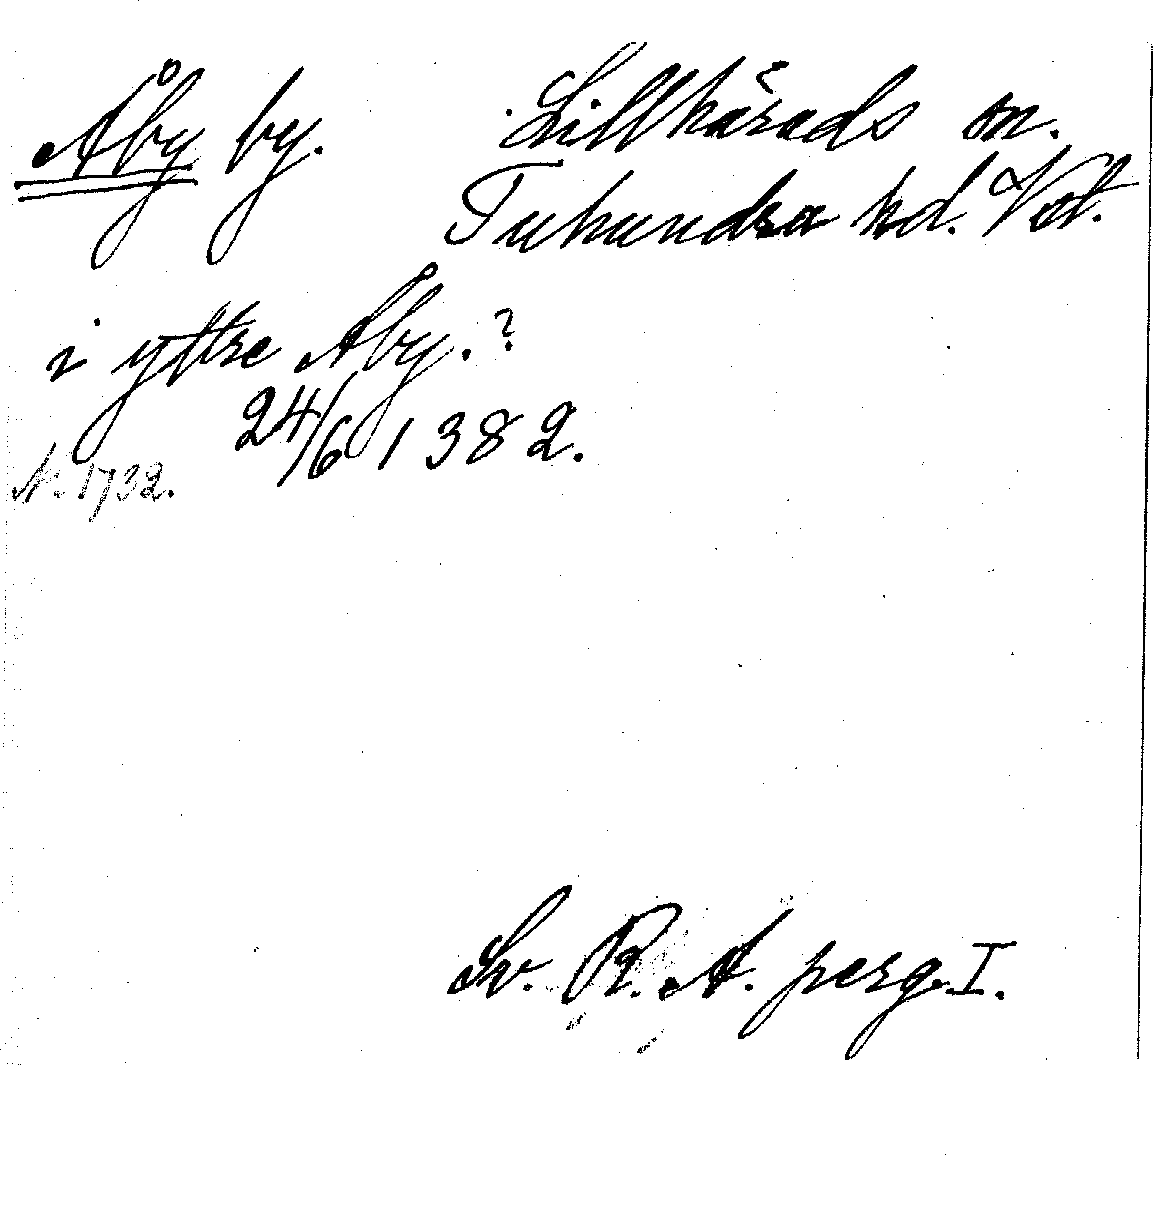 Åby by. Lillhärads sn.
Tuhundra hd. Vstl.
i yttre Åby.?
24/6 1382.
N. 1732.
Sv. R. A. perg. I.